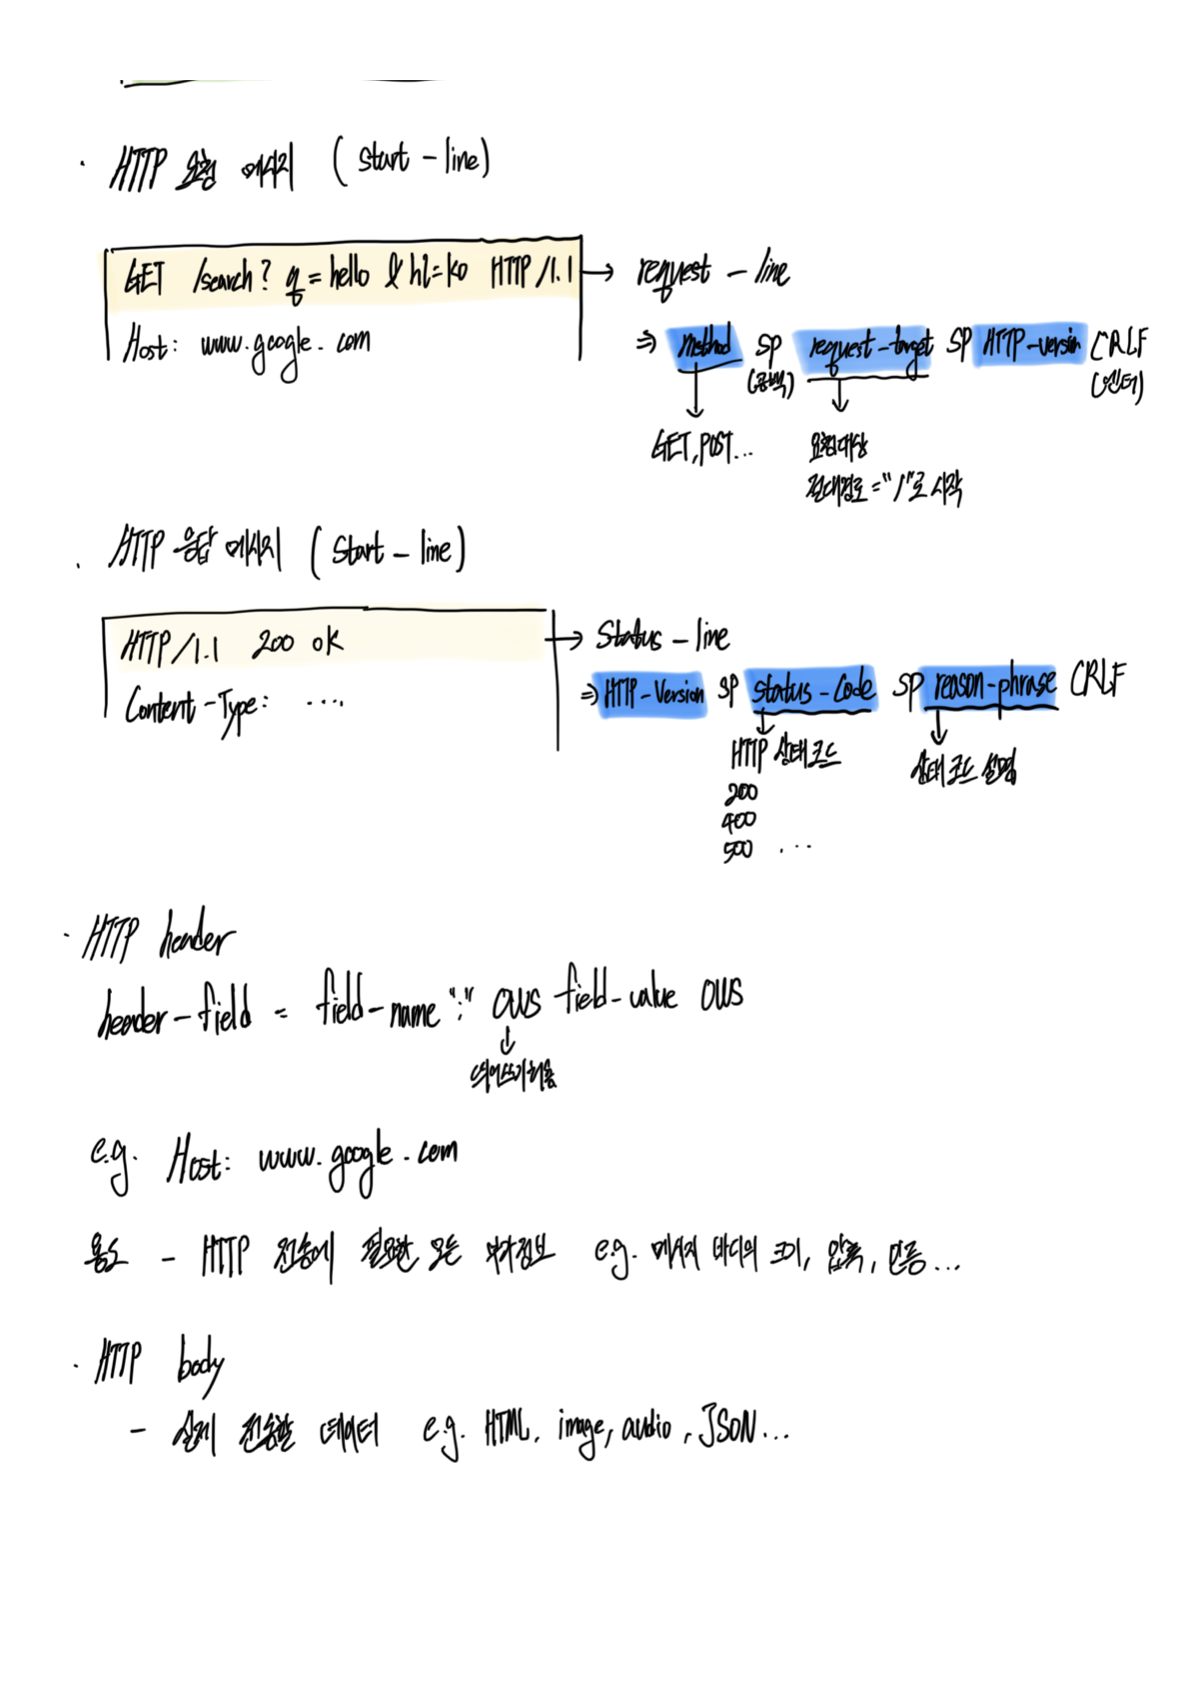 · HTTP 요청 메시지 (start-line)
GET /search?q=hello&hl=ko HTTP/1.1 → request-line
Host: www.google.com
⇒ method SP request-target SP HTTP-version CRLF
(공백) (엔터)
GET, POST... 요청대상
절대경로="/"로 시작
· HTTP 응답 메시지 (start-line)
HTTP/1.1 200 OK → status-line
Content-Type: ....
⇒ HTTP-version SP status-code SP reason-phrase CRLF
HTTP 상태코드 상태코드 설명
200
400
500 ...
· HTTP header
header-field = field-name ":" OWS field-value OWS
띄어쓰기허용
e.g. Host: www.google.com
용도 - HTTP 전송에 필요한 모든 부가정보 e.g. 메시지 바디의 크기, 압축, 인증...
· HTTP body
- 실제 전송할 데이터 e.g. HTML, image, audio, JSON...